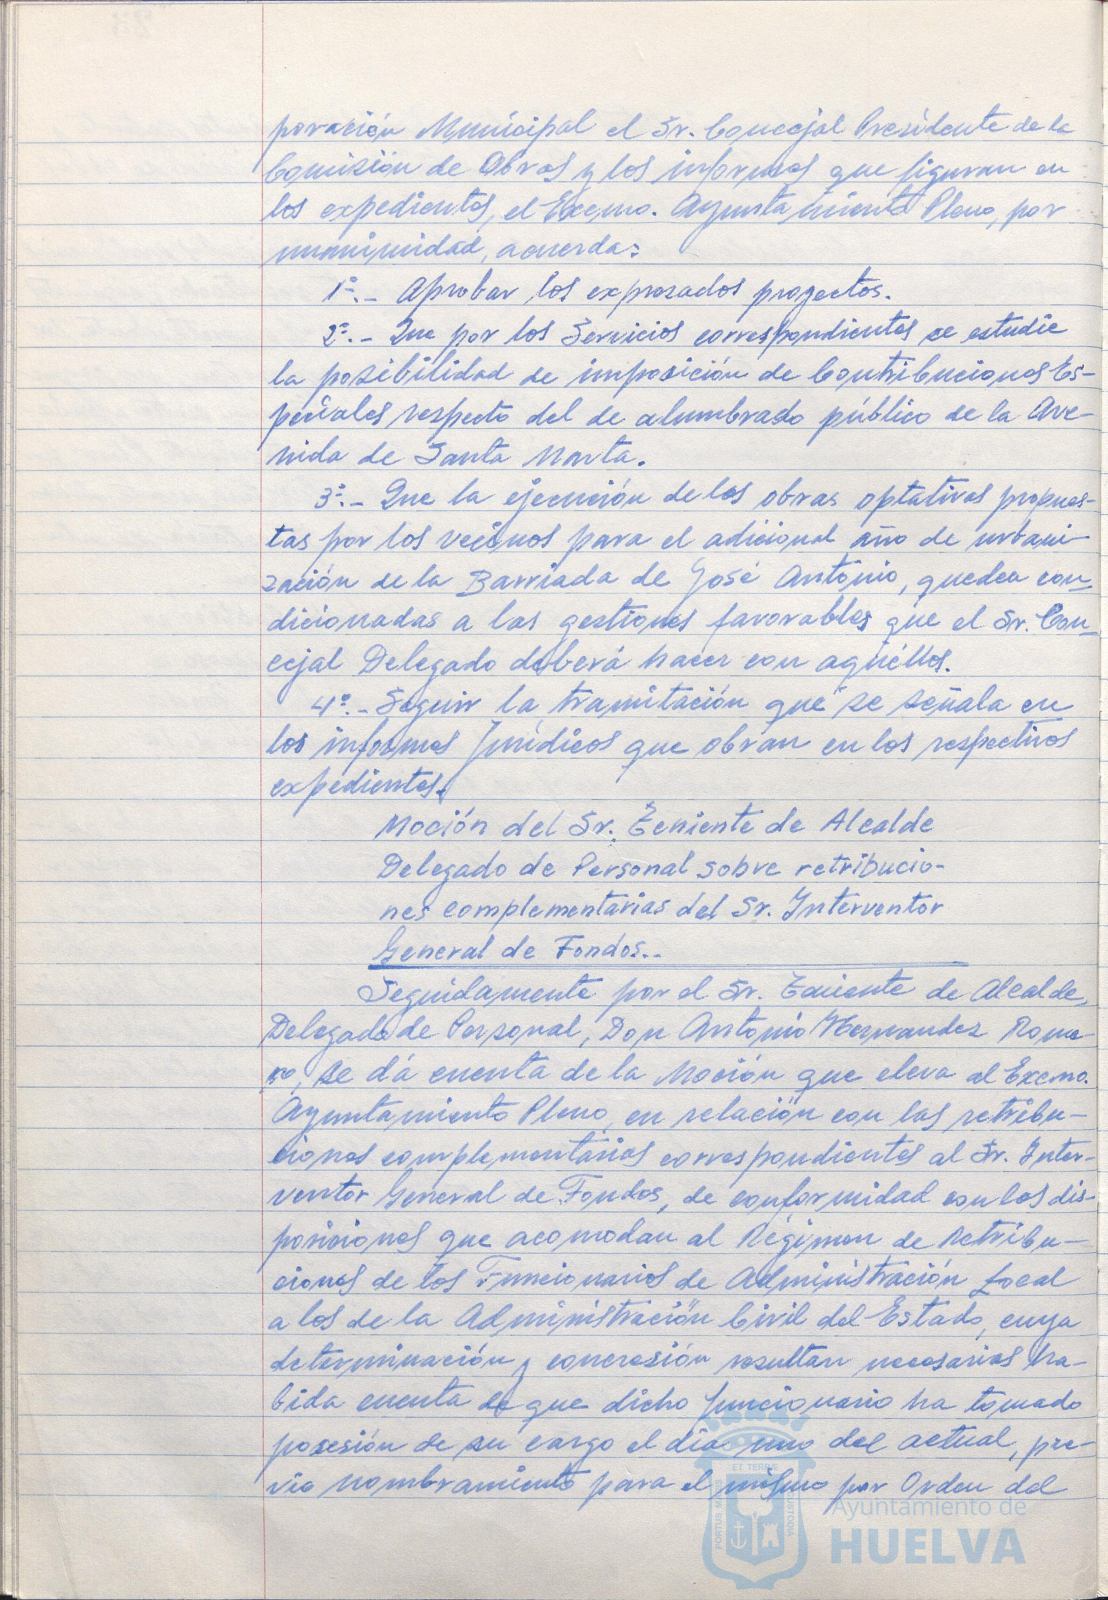 poración Municipal el Sr. Concejal Presidente de la
Comisión de Obras y los informes que figuran en
los expedientes, el Excmo. Ayuntamiento Pleno, por
unanimidad, acuerda:
1º.- Aprobar los expresados proyectos.
2º.- Que por los Servicios correspondientes se estudie
la posibilidad de imposición de Contribuciones Es-
peciales respecto del de alumbrado público de la Ave-
nida de Santa Marta.
3º.- Que la ejecución de las obras optativas propues-
tas por los vecinos para el adicional año de urbani-
zación de la Barriada de José Antonio, queden con-
dicionadas a las gestiones favorables que el Sr. Con-
cejal Delegado deberá hacer con aquéllos.
4º.- Seguir la tramitación que se señala en
los informes Jurídicos que obran en los respectivos
expedientes.
Moción del Sr. Teniente de Alcalde
Delegado de Personal sobre retribucio-
nes complementarias del Sr. Interventor
General de Fondos.-
Seguidamente por el Sr. Teniente de Alcalde,
Delegado de Personal, Don Antonio Hernandez Rome-
ro, se dá cuenta de la Moción que eleva al Excmo.
Ayuntamiento Pleno, en relación con las retribu-
ciones complementarias correspondientes al Sr. Inter-
ventor General de Fondos, de conformidad con las dis-
posiciones que acomodan al Régimen de Retribu-
ciones de los Funcionarios de Administración Local
a los de la Administración Civil del Estado, cuya
determinación y concresión resultan necesarias ha-
bida cuenta de que dicho funcionario ha tomado
posesión de su cargo el día uno del actual, pre-
vio nombramiento para el mismo por Orden del
PORTUS MARIS ET TERRE CUSTODIA
Ayuntamiento de
HUELVA